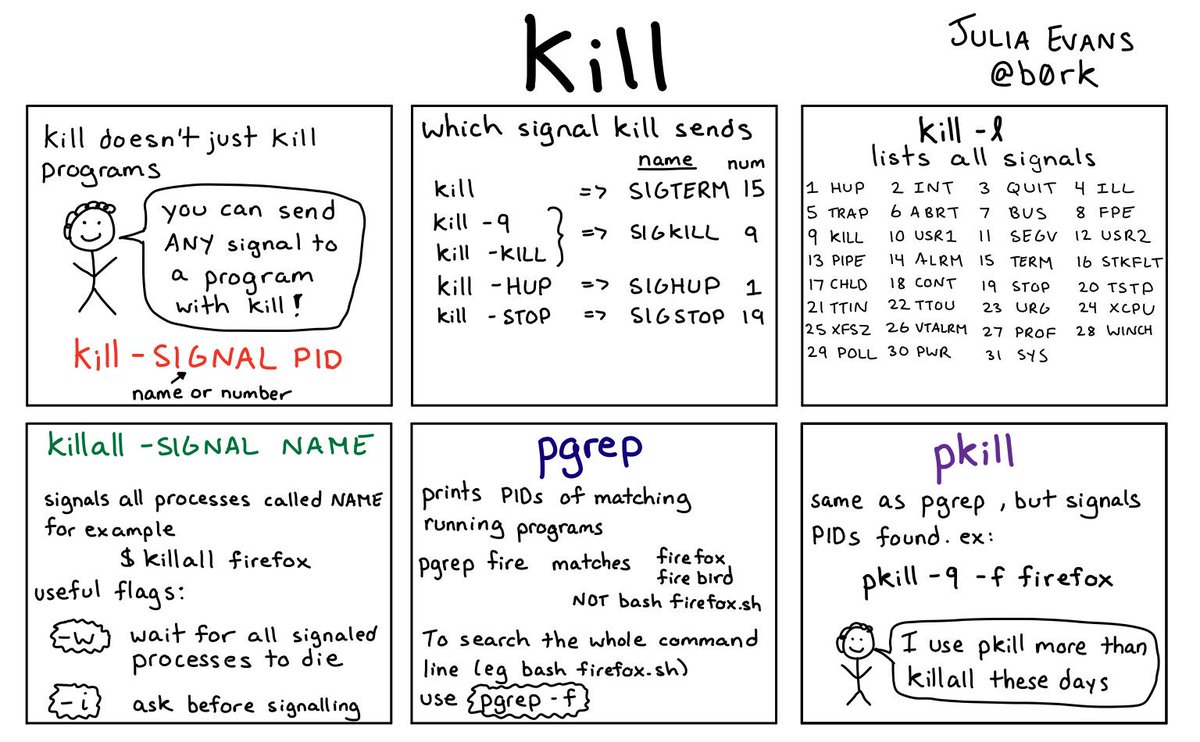 kill
JULIA EVANS
@b0rk
kill doesn't just kill
programs
you can send
ANY signal to
a program
with kill!
kill -SIGNAL PID
name or number
which signal kill sends
name num
kill => SIGTERM 15
kill -9
kill -KILL
=> SIGKILL 9
kill -HUP => SIGHUP 1
kill -STOP => SIGSTOP 19
kill -l
lists all signals
1 HUP 2 INT 3 QUIT 4 ILL
5 TRAP 6 ABRT 7 BUS 8 FPE
9 KILL 10 USR1 11 SEGV 12 USR2
13 PIPE 14 ALRM 15 TERM 16 STKFLT
17 CHLD 18 CONT 19 STOP 20 TSTP
21 TTIN 22 TTOU 23 URG 24 XCPU
25 XFSZ 26 VTALRM 27 PROF 28 WINCH
29 POLL 30 PWR 31 SYS
killall -SIGNAL NAME
signals all processes called NAME
for example
$ killall firefox
useful flags:
-w wait for all signaled
processes to die
-i ask before signalling
pgrep
prints PIDs of matching
running programs
pgrep fire matches firefox
firebird
NOT bash firefox.sh
To search the whole command
line (eg bash firefox.sh)
use pgrep -f
pkill
same as pgrep, but signals
PIDs found. ex:
pkill -9 -f firefox
I use pkill more than
killall these days